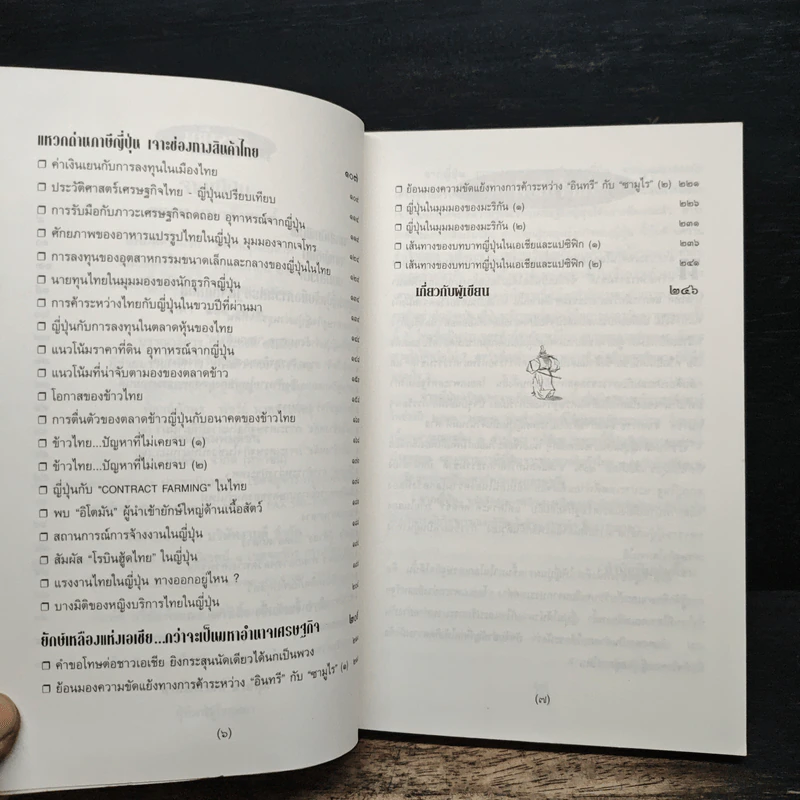 แหวกด่านภาษีญี่ปุ่น เจาะช่องทางสินค้าไทย ๑๐๗
ค่าเงินเยนกับการลงทุนในเมืองไทย
ประวัติศาสตร์เศรษฐกิจไทย - ญี่ปุ่นเปรียบเทียบ
การรับมือกับภาวะเศรษฐกิจถดถอย อุทาหรณ์จากญี่ปุ่น
ศักยภาพของอาหารแปรรูปไทยในญี่ปุ่น มุมมองจากเจโทร
การลงทุนของอุตสาหกรรมขนาดเล็กและกลางของญี่ปุ่นในไทย
นายทุนไทยในมุมมองของนักธุรกิจญี่ปุ่น
การค้าระหว่างไทยกับญี่ปุ่นในขวบปีที่ผ่านมา
ญี่ปุ่นกับการลงทุนในตลาดหุ้นของไทย
แนวโน้มราคาที่ดิน อุทาหรณ์จากญี่ปุ่น
แนวโน้มที่น่าจับตามองของตลาดข้าว
โอกาสของข้าวไทย
การตื่นตัวของตลาดข้าวญี่ปุ่นกับอนาคตของข้าวไทย
ข้าวไทย...ปัญหาที่ไม่เคยจบ (๑)
ข้าวไทย...ปัญหาที่ไม่เคยจบ (๒)
ญี่ปุ่นกับ "CONTRACT FARMING" ในไทย
พบ "อิโตมัน" ผู้นำเข้ายักษ์ใหญ่ด้านเนื้อสัตว์
สถานการณ์การจ้างงานในญี่ปุ่น
สัมผัส "โรบินฮู้ดไทย" ในญี่ปุ่น
แรงงานไทยในญี่ปุ่น ทางออกอยู่ไหน ?
บางมิติของหญิงบริการไทยในญี่ปุ่น
ยักษ์เหลืองแห่งเอเชีย...กว่าจะเป็นมหาอำนาจเศรษฐกิจ
คำขอโทษต่อชาวเอเชีย ยิงกระสุนนัดเดียวได้นกเป็นพวง
ย้อนมองความขัดแย้งทางการค้าระหว่าง "อินทรี" กับ "ซามูไร" (๑)
(๖)
ย้อนมองความขัดแย้งทางการค้าระหว่าง "อินทรี" กับ "ซามูไร" (๒) ๒๒๑
ญี่ปุ่นในมุมมองของมะริกัน (๑) ๒๒๖
ญี่ปุ่นในมุมมองของมะริกัน (๒) ๒๓๑
เส้นทางของบทบาทญี่ปุ่นในเอเชียและแปซิฟิก (๑) ๒๓๖
เส้นทางของบทบาทญี่ปุ่นในเอเชียและแปซิฟิก (๒) ๒๔๑
เกี่ยวกับผู้เขียน ๒๔๖
(๗)